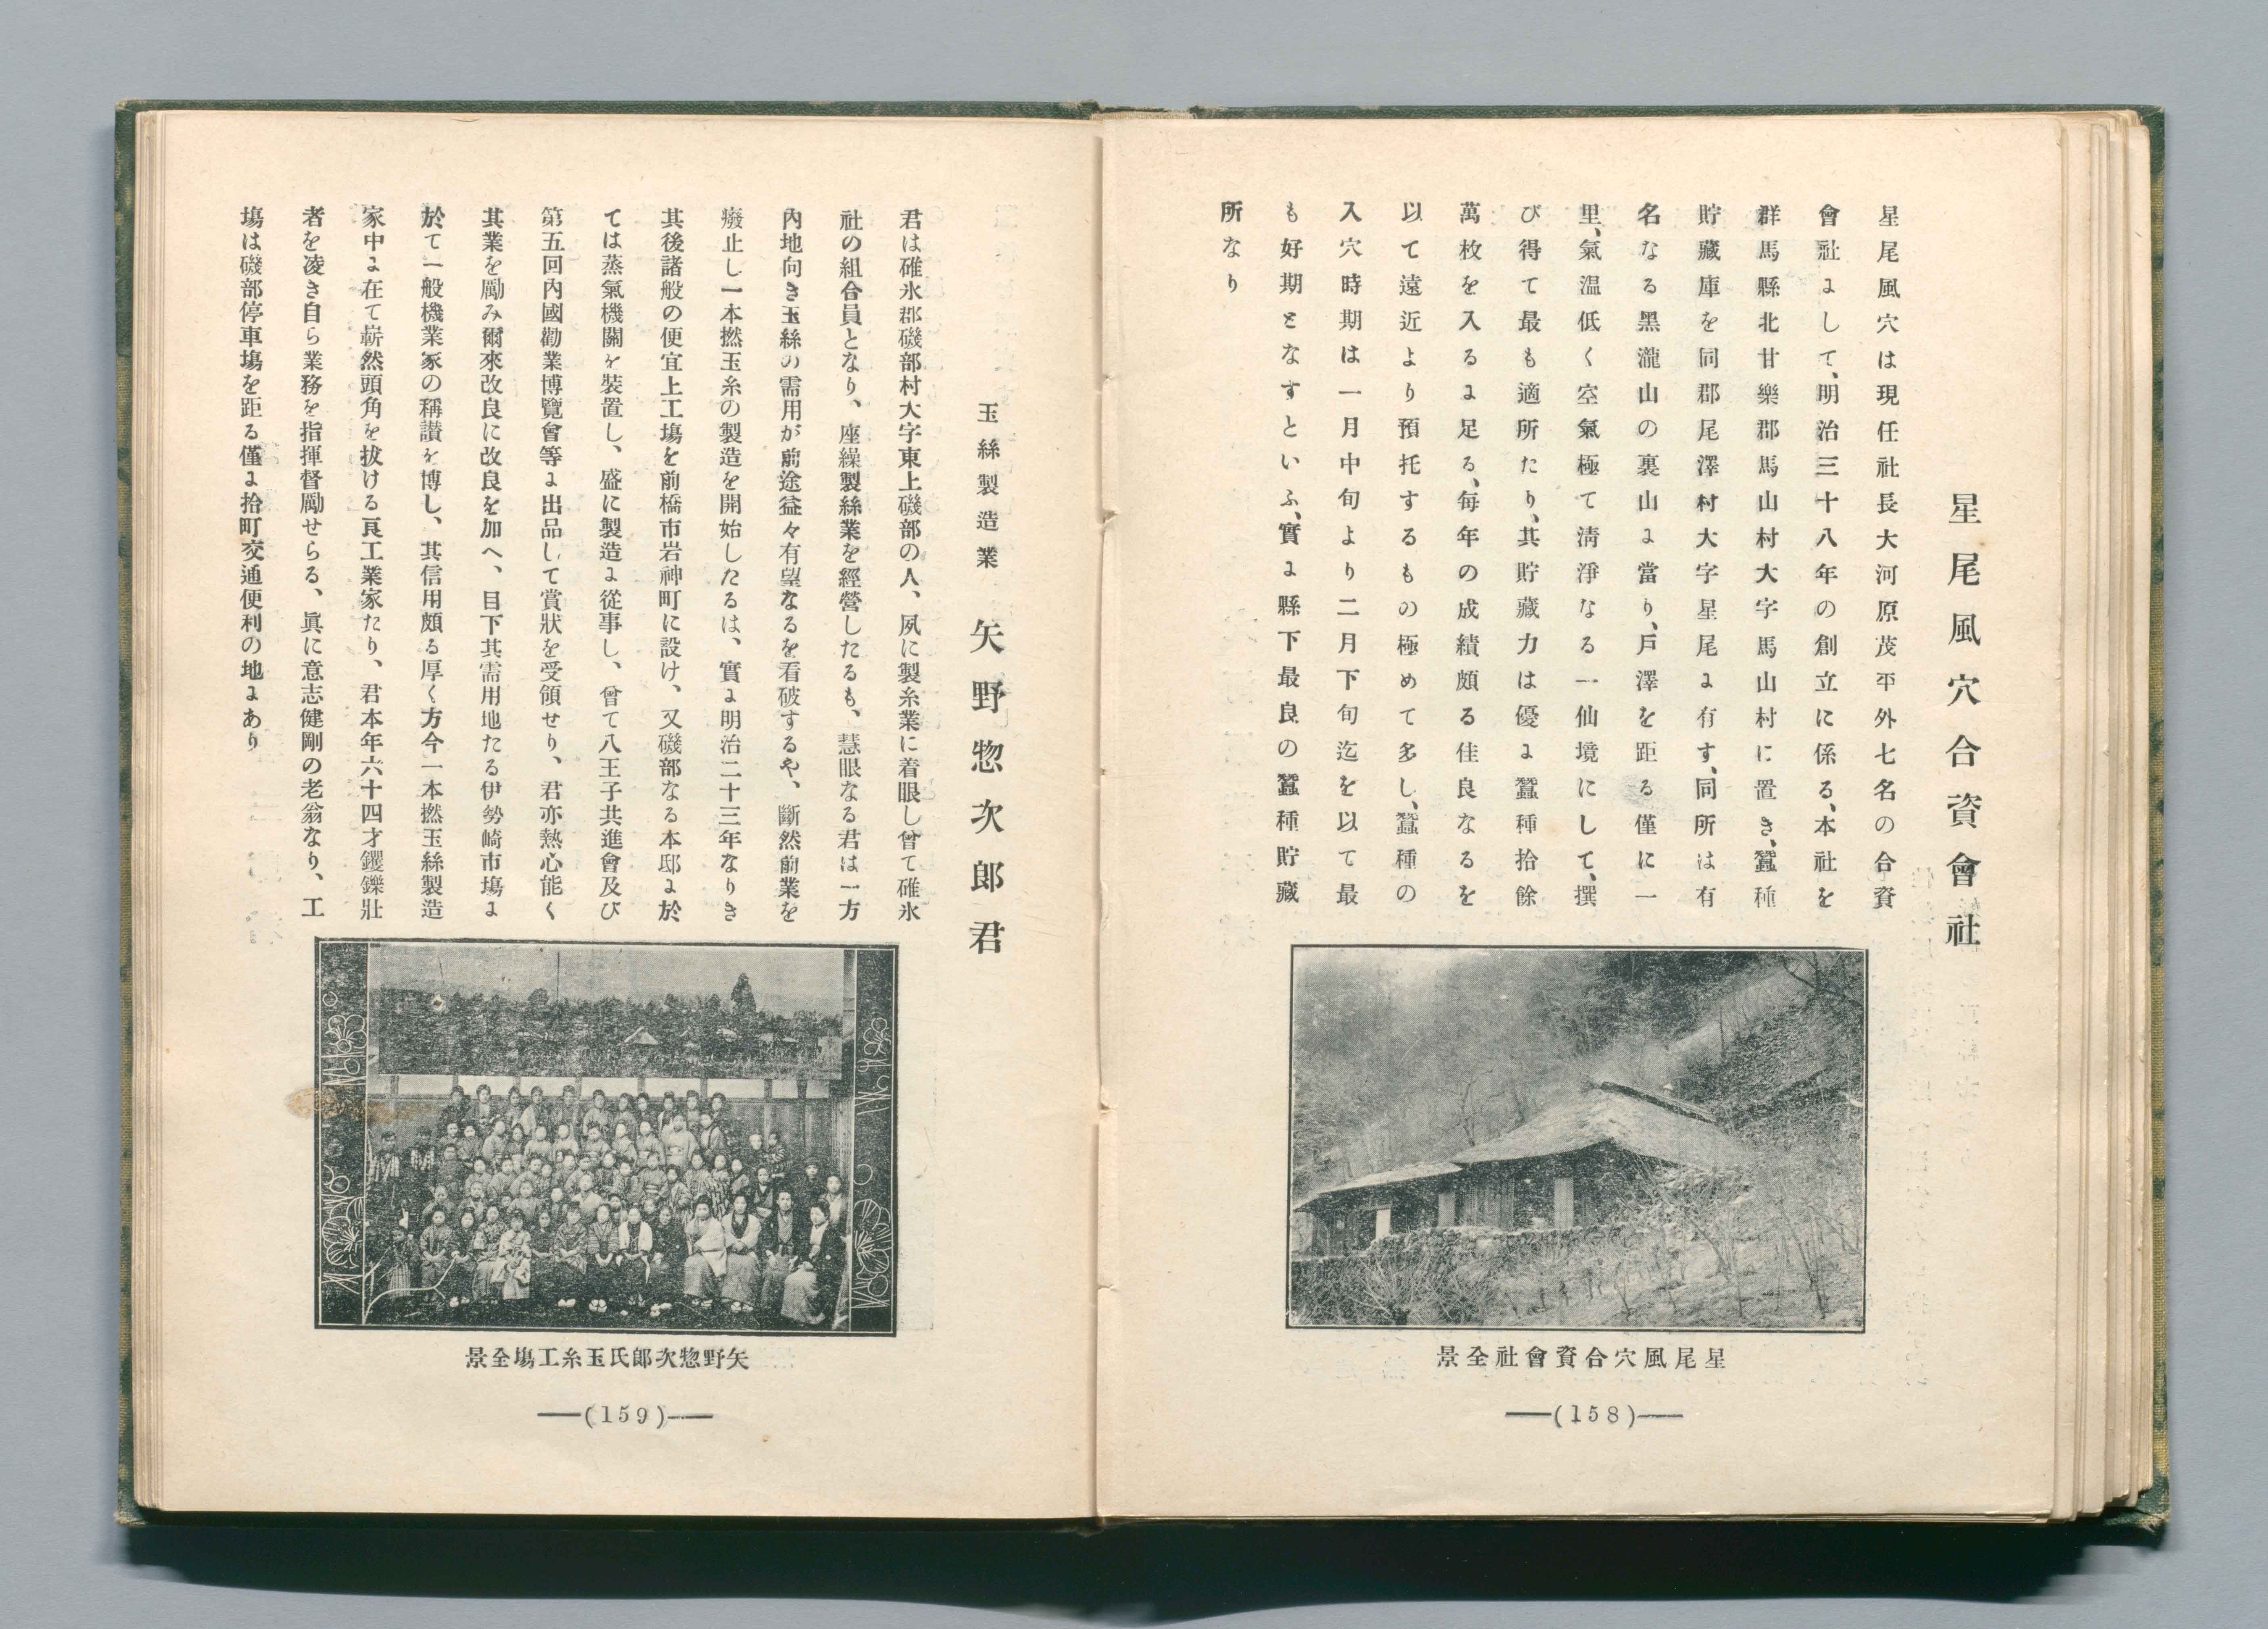 星尾風穴合資會社
星尾風穴は現任社長大河原茂平外七名の合資
會社にして、明治三十八年の創立に係る、本社を
群馬縣北甘樂郡馬山村大字馬山村に置き、蠶種
貯藏庫を同郡尾澤村大字星尾に有す、同所は有
名なる黑瀧山の裏山に當り、戸澤を距る僅に一
里、氣温低く空氣極て清淨なる一仙境にして、撰
び得て最も適所たり、其貯藏力は優に蠶種拾餘
萬枚を入るに足る、毎年の成績頗る佳良なるを
以て遠近より預托するもの極めて多し、蠶種の
入穴時期は一月中旬より二月下旬迄を以て最
も好期となすといふ、實に縣下最良の蠶種貯藏
所なり
星尾風穴合資會社全景
(158)
玉絲製造業 矢野惣次郎君
君は碓氷郡磯部村大字東上磯部の人、夙に製糸業に着眼し曾て碓氷
社の組合員となり、座繰製絲業を經營したるも、慧眼なる君は一方
内地向き玉絲の需用が前途益々有望なるを看破するや、斷然前業を
癈止し一本撚玉糸の製造を開始したるは、實に明治二十三年なりき
其後諸般の便宜上工塲を前橋市岩神町に設け、又磯部なる本邸に於
ては蒸氣機關を裝置し、盛に製造に從事し、曾て八王子共進會及び
第五回内國勸業博覽會等に出品して賞狀を受領せり、君亦熱心能く
其業を勵み爾來改良に改良を加へ、目下其需用地たる伊勢崎市塲に
於て一般機業家の稱讃を博し、其信用頗る厚く方今一本撚玉絲製造
家中に在て嶄然頭角を拔ける良工業家たり、君本年六十四才钁鑠壯
者を凌き自ら業務を指揮督勵せらる、眞に意志健剛の老翁なり、工
塲は磯部停車塲を距る僅に拾町交通便利の地にあり
矢野惣次郎氏玉糸工塲全景
(159)